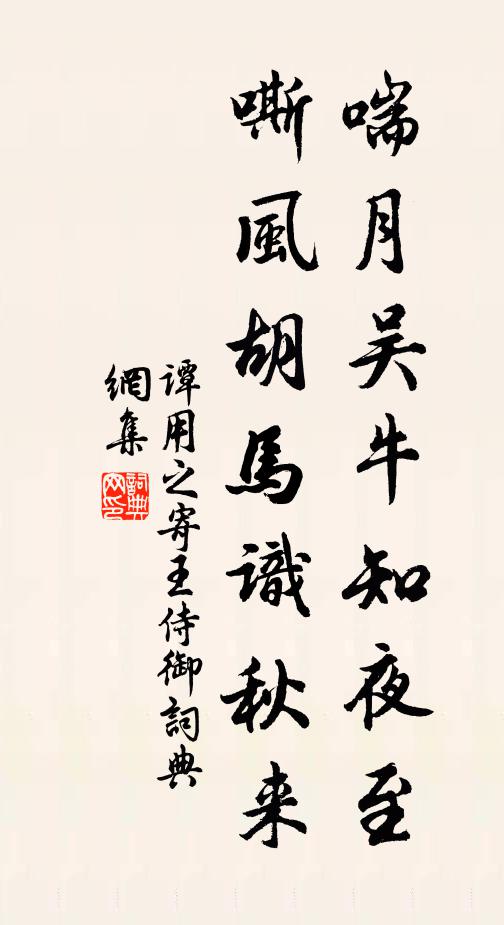 喘月吴牛知夜至
嘶風胡馬識秋来
谭用之寄王侍御詞典
網集
詞典
网印